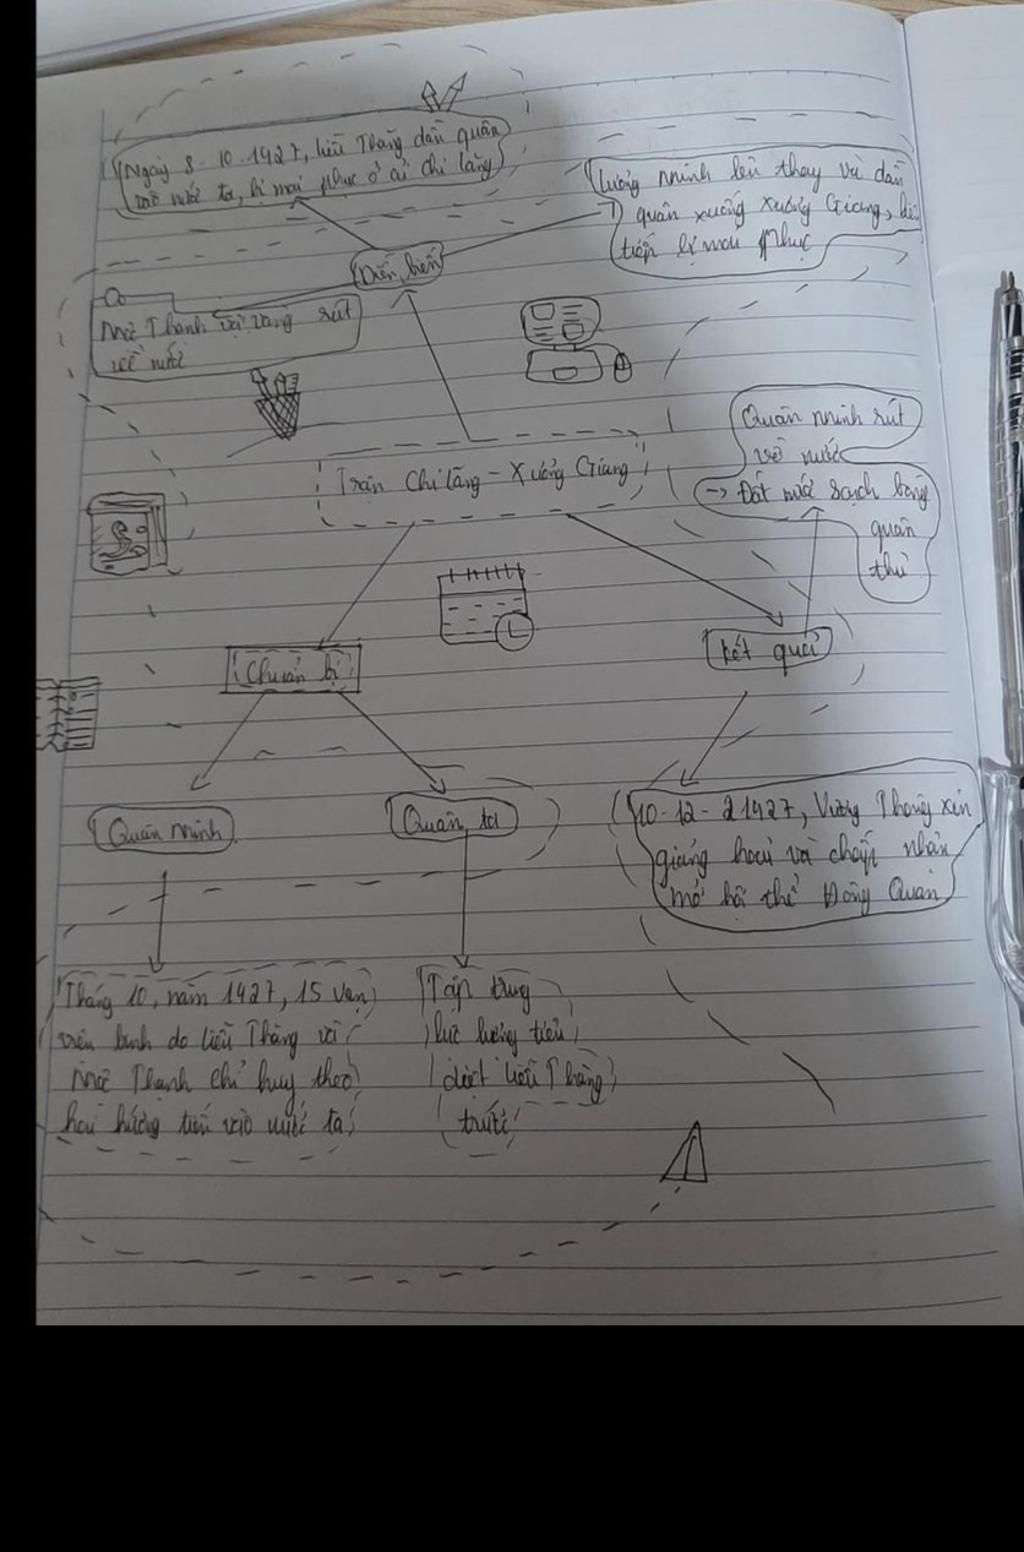 Ngày 8-10-1427, Liễu Thăng dẫn quân
vào nước ta, bị mai phục ở ải Chi Lăng
Lương Minh lên thay và dẫn
quân xuống Xương Giang, liên
tiếp bị mai phục
Diễn biến
Mộc Thạnh vội vàng rút
về nước
Trận Chi Lăng - Xương Giang
Quân Minh rút
về nước
-> Đất nước sạch bóng
quân
thù
Chuẩn bị
Kết quả
Quân Minh
Quân ta
10-12-21427, Vương Thông xin
giảng hoà và chấp nhận
mở hội thề Đông Quan
Tháng 10, năm 1427, 15 vạn
viện binh do Liễu Thăng và
Mộc Thạnh chỉ huy theo
hai hướng tiến vào nước ta
Tập trung
lực lượng tiêu
diệt Liễu Thăng
trước